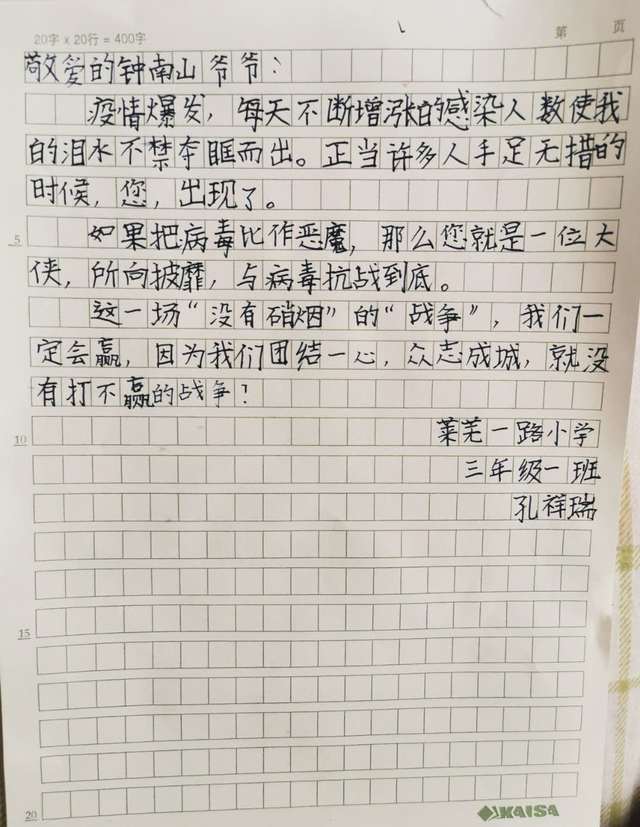 20字 x 20行 = 400字
第 页
敬爱的钟南山爷爷：
疫情爆发，每天不断增涨的感染人数使我
的泪水不禁夺眶而出。正当许多人手足无措的
时候，您，出现了。
5
如果把病毒比作恶魔，那么您就是一位大
侠，所向披靡，与病毒抗战到底。
这一场“没有硝烟”的“战争”，我们一
定会赢，因为我们团结一心，众志成城，就没
有打不赢的战争！
莱芜一路小学
10
三年级一班
孔祥瑞
15
20
KAISA